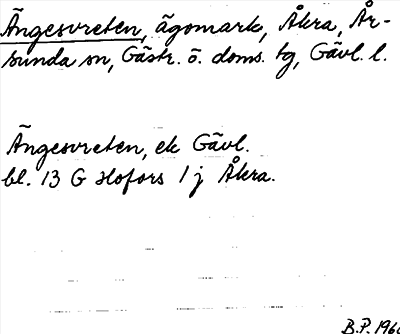 Ängesvreten, ägomark, Åkra, År-
sunda sn, Gästr. ö. doms. tg, Gävl. l.
Ängesvreten, ek Gävl.
bl. 13 G Hofors 1 j Åkra.
B.P. 196